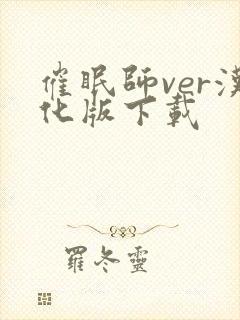 催眠師ver漢
化版下載
羅冬靈